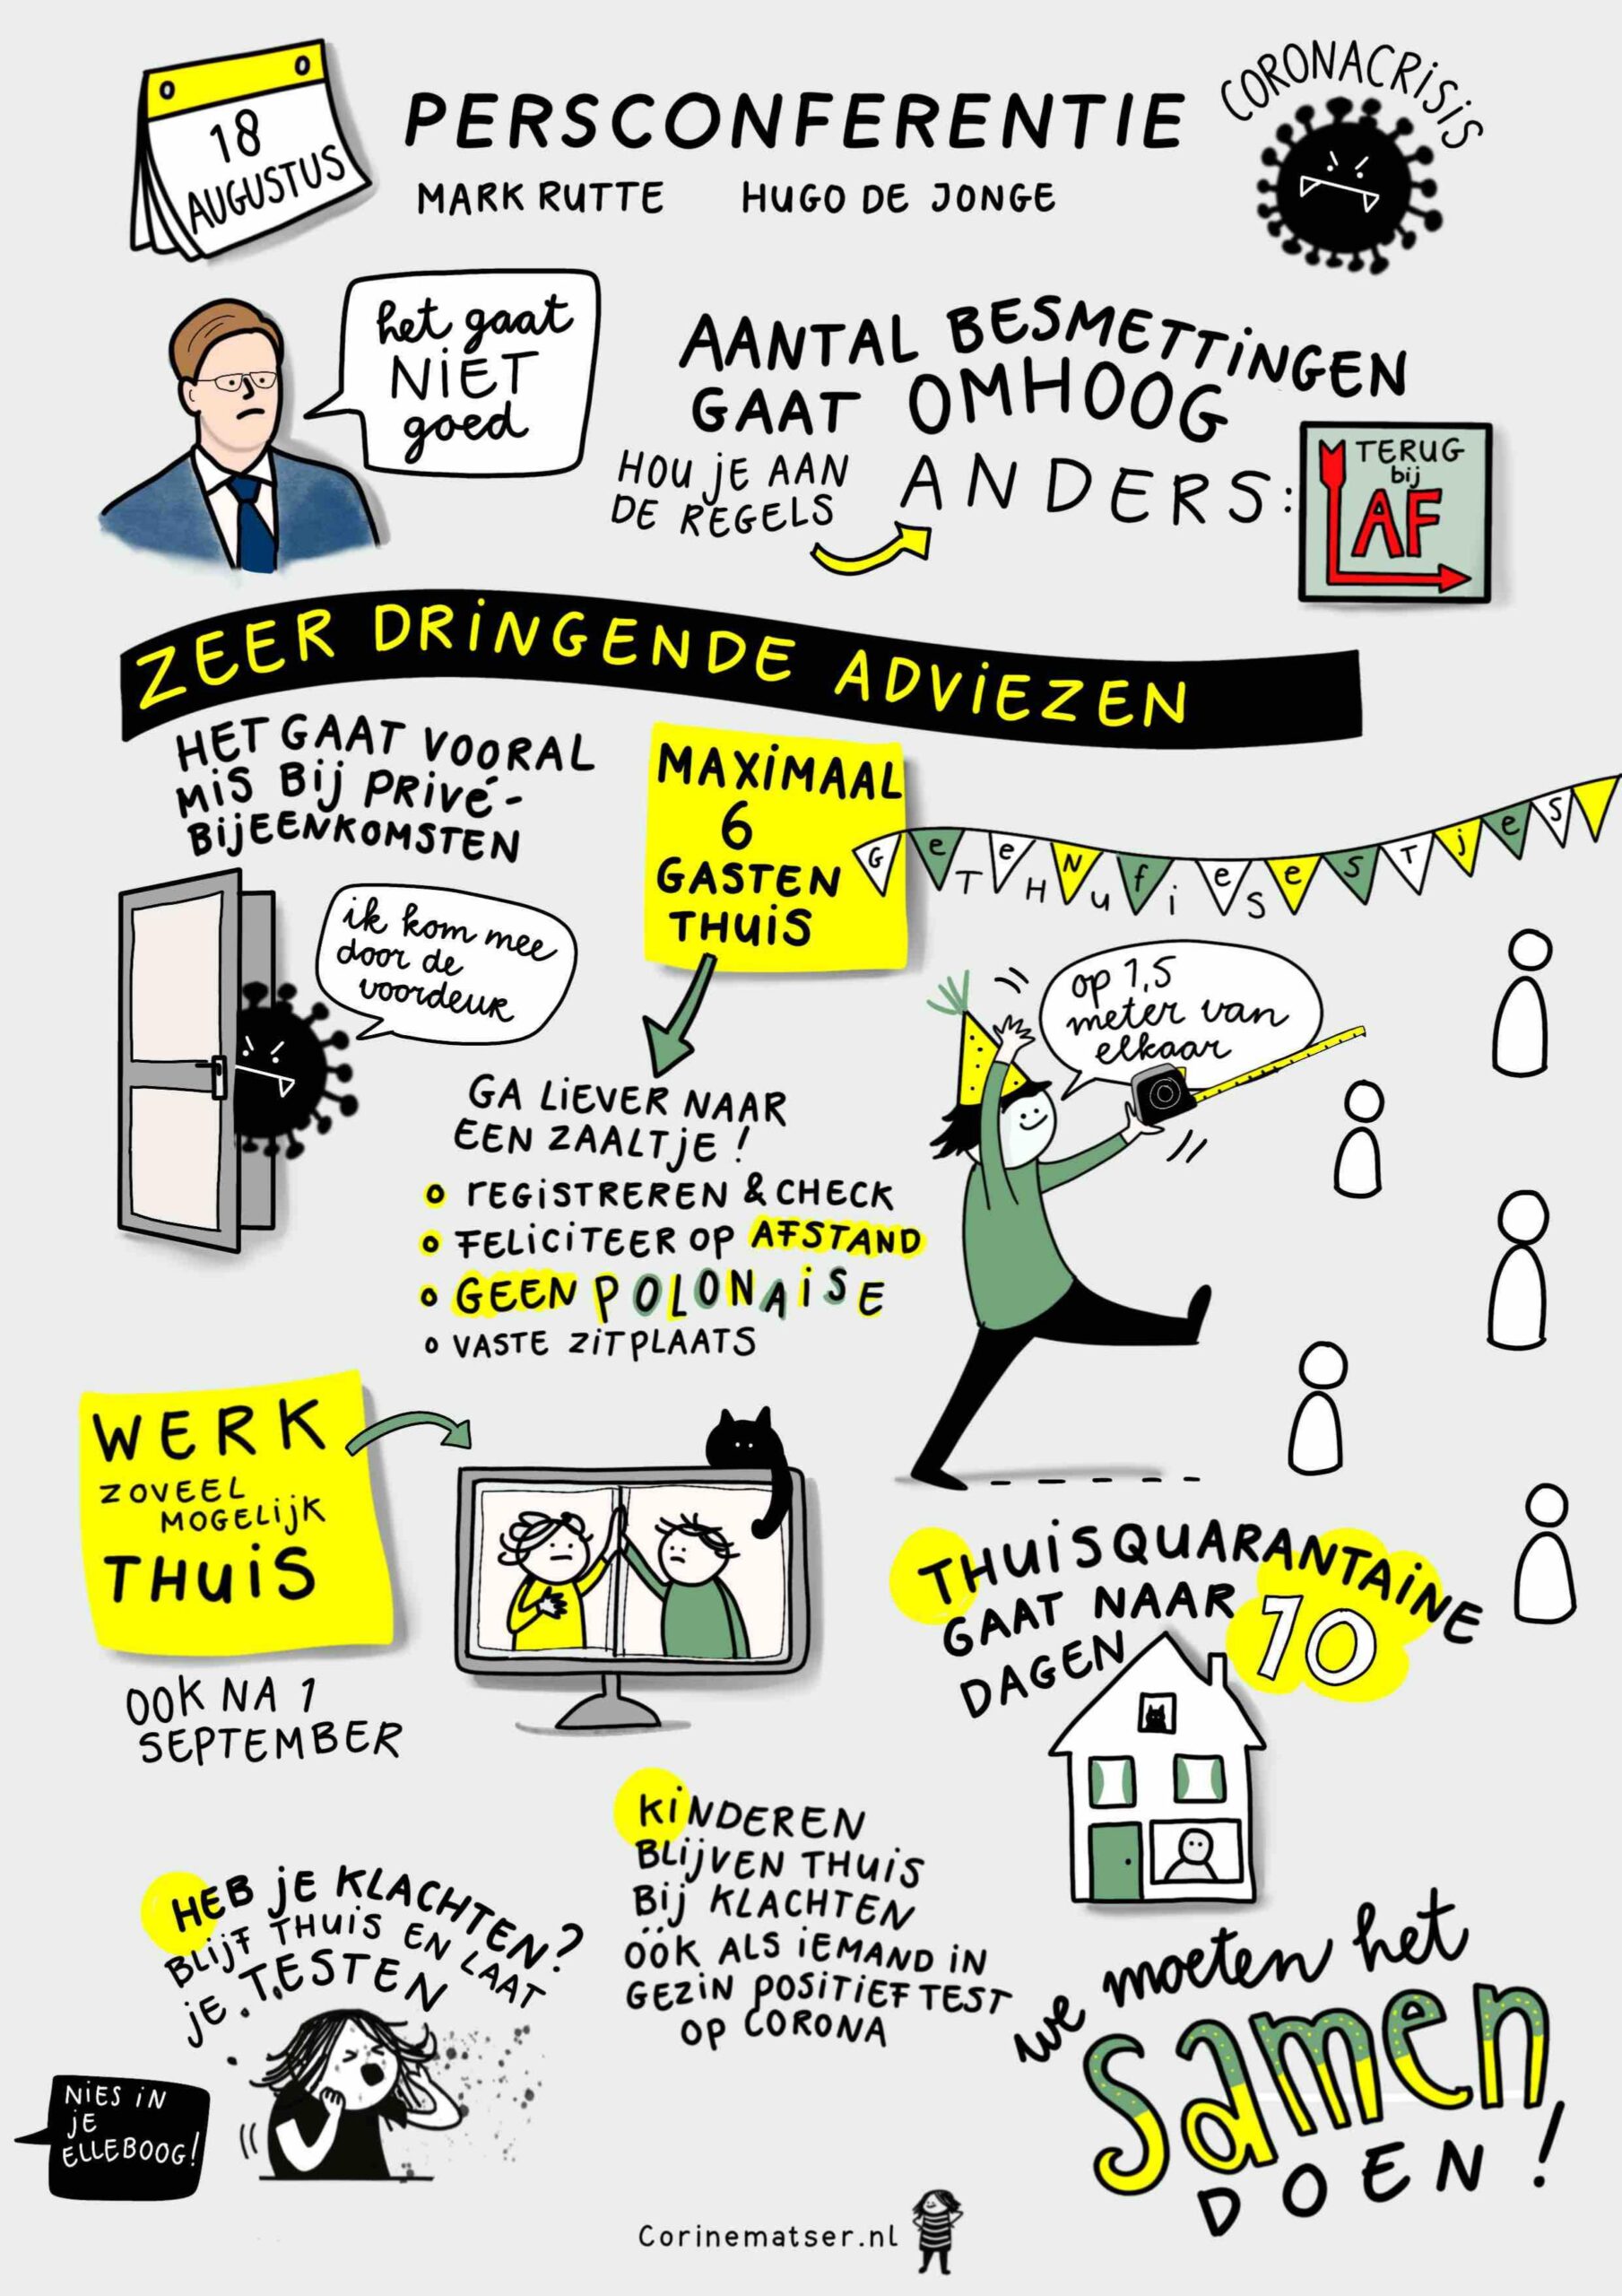 18
AUGUSTUS
PERSCONFERENTIE
MARK RUTTE HUGO DE JONGE
CORONACRISIS
het gaat
NIET
goed
AANTAL BESMETTINGEN
GAAT OMHOOG
HOU JE AAN
DE REGELS
ANDERS:
TERUG
bij
AF
ZEER DRINGENDE ADVIEZEN
HET GAAT VOORAL
MIS BIJ PRIVÉ-
BIJEENKOMSTEN
ik kom mee
door de
voordeur
MAXIMAAL
6
GASTEN
THUIS
GETTEHNUFIESESTJES
op 1,5
meter van
elkaar
GA LIEVER NAAR
EEN ZAALTJE!
REGISTREREN & CHECK
FELICITEER OP AFSTAND
GEEN POLONAISE
VASTE ZITPLAATS
WERK
ZOVEEL
MOGELIJK
THUIS
OOK NA 1
SEPTEMBER
THUISQUARANTAINE
GAAT NAAR 10
DAGEN
KINDEREN
BLIJVEN THUIS
BIJ KLACHTEN
ÓÓK ALS IEMAND IN
GEZIN POSITIEF TEST
OP CORONA
HEB JE KLACHTEN?
BLIJF THUIS EN LAAT
JE TESTEN
NIES IN
JE
ELLEBOOG!
we moeten het
samen
DOEN!
Corinematser.nl